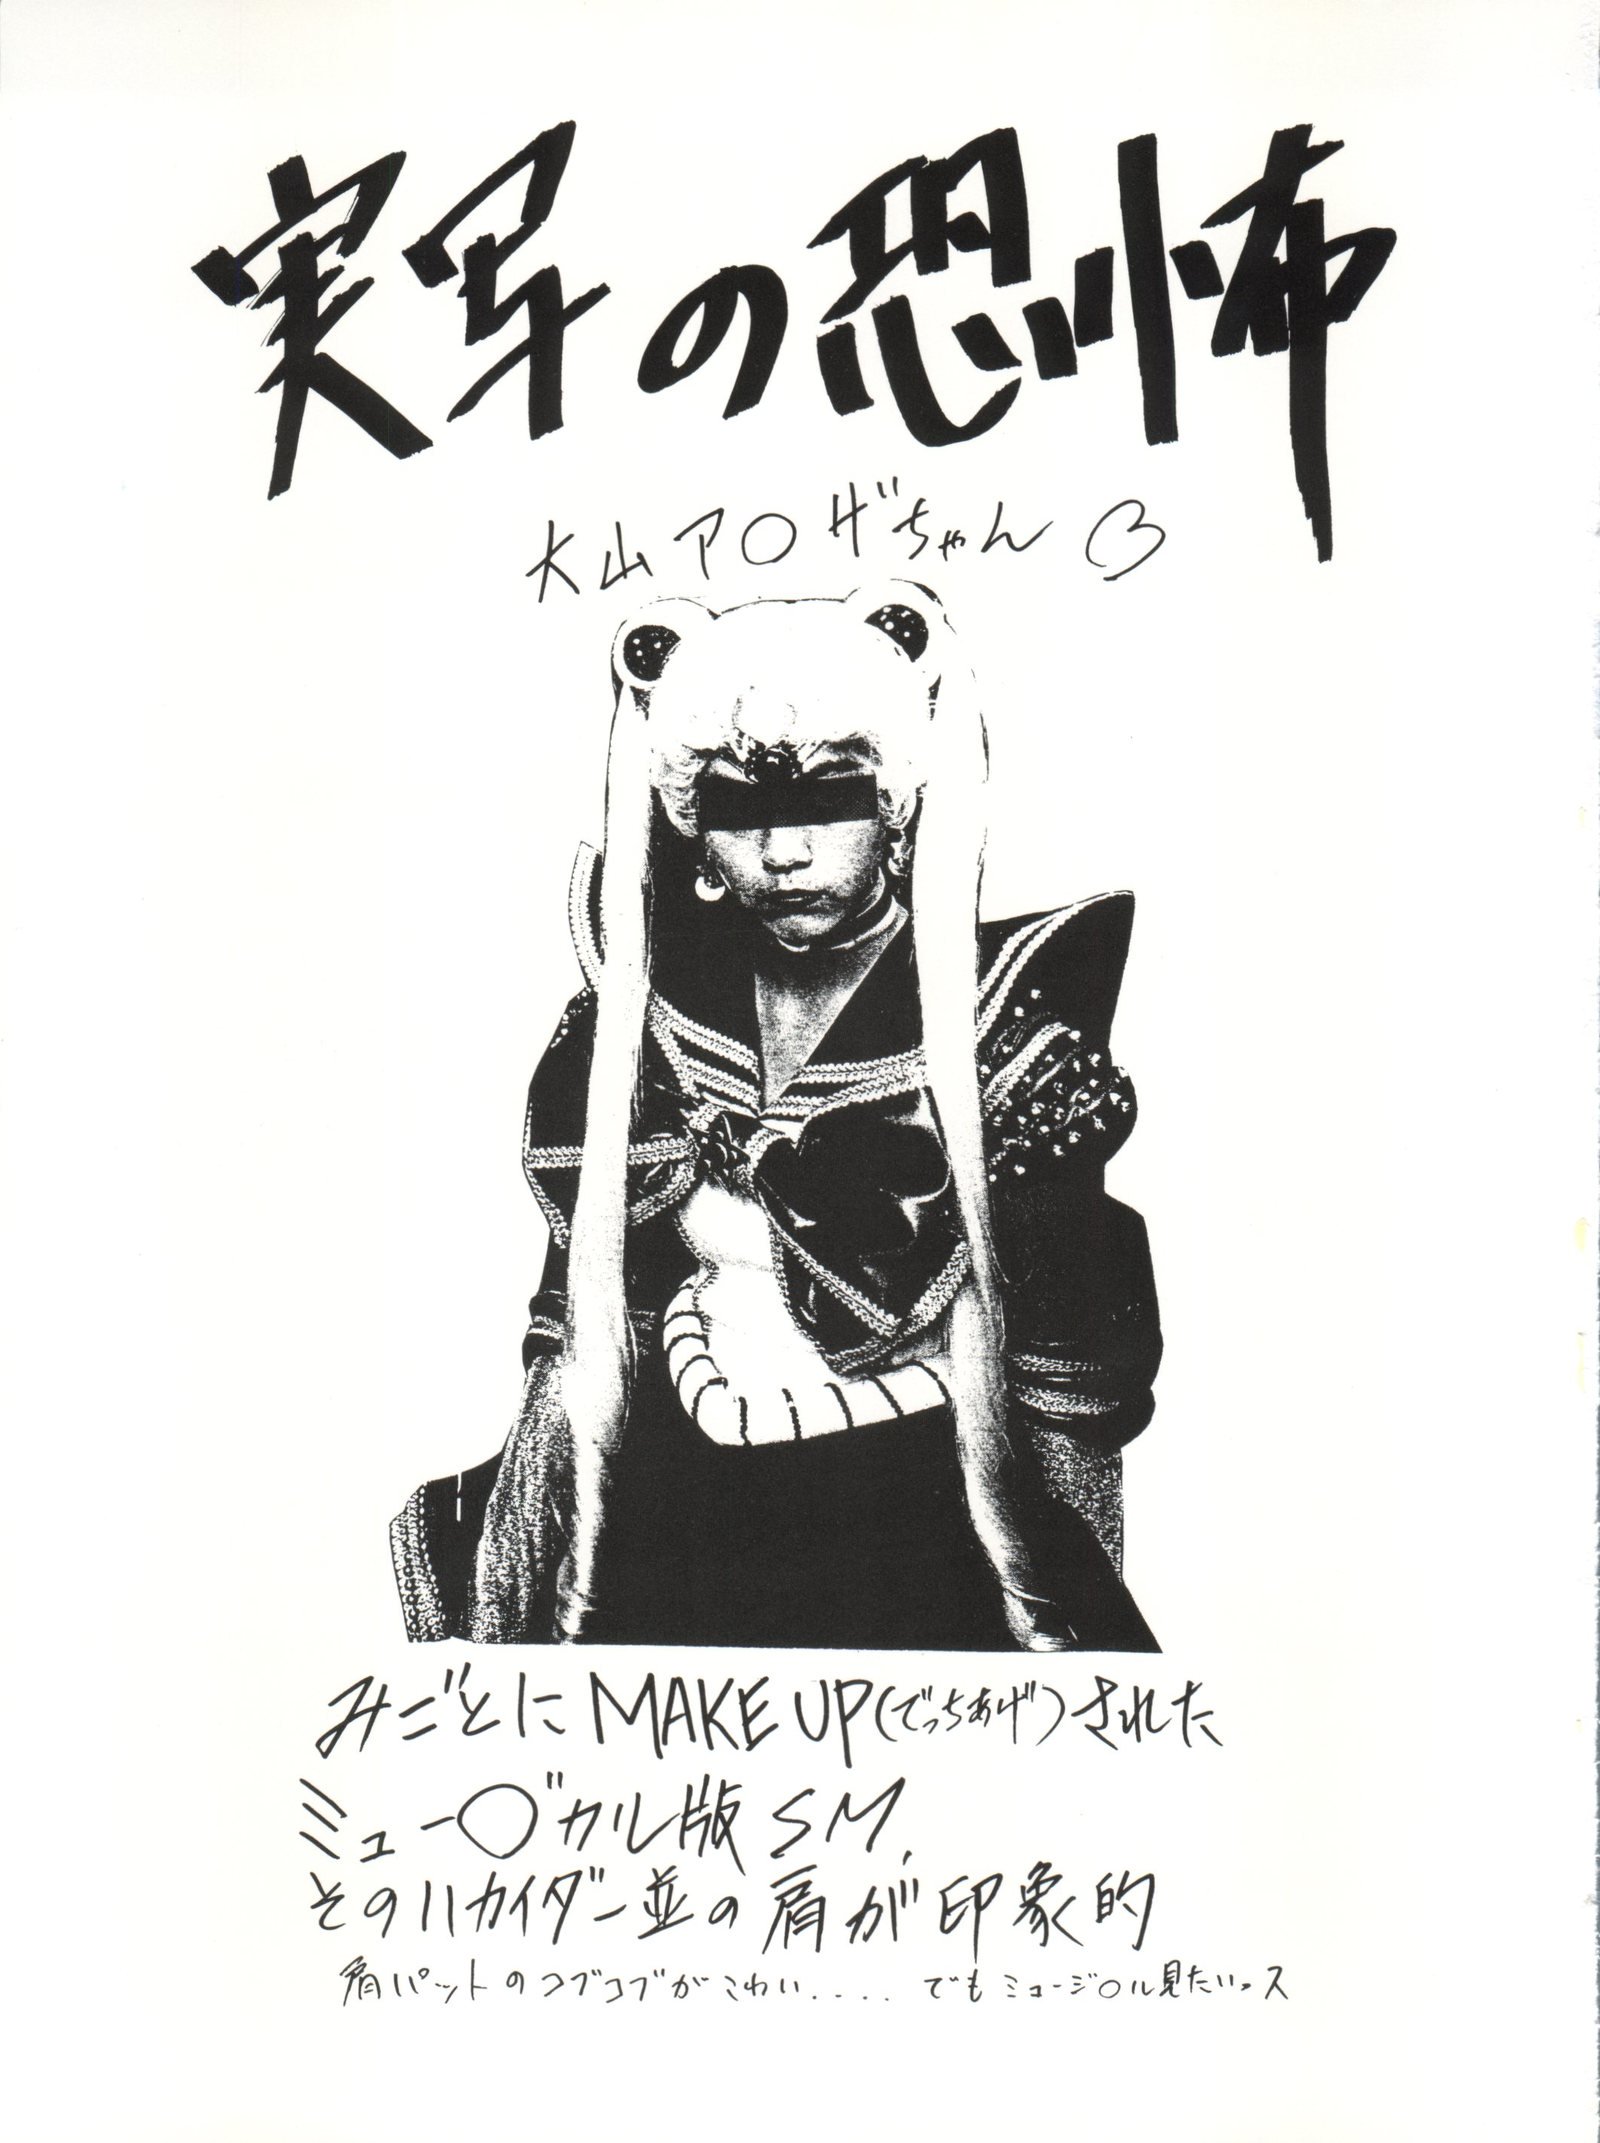 実写の恐怖
大山ア〇ザちゃん(3
みごとにMAKE UP(でっちあげ)された
ミュー〇゛カル版SM.
そのハカイダー並の肩が印象的
肩パットのコブコブがこわい....でもミュージ〇ル見たいっス